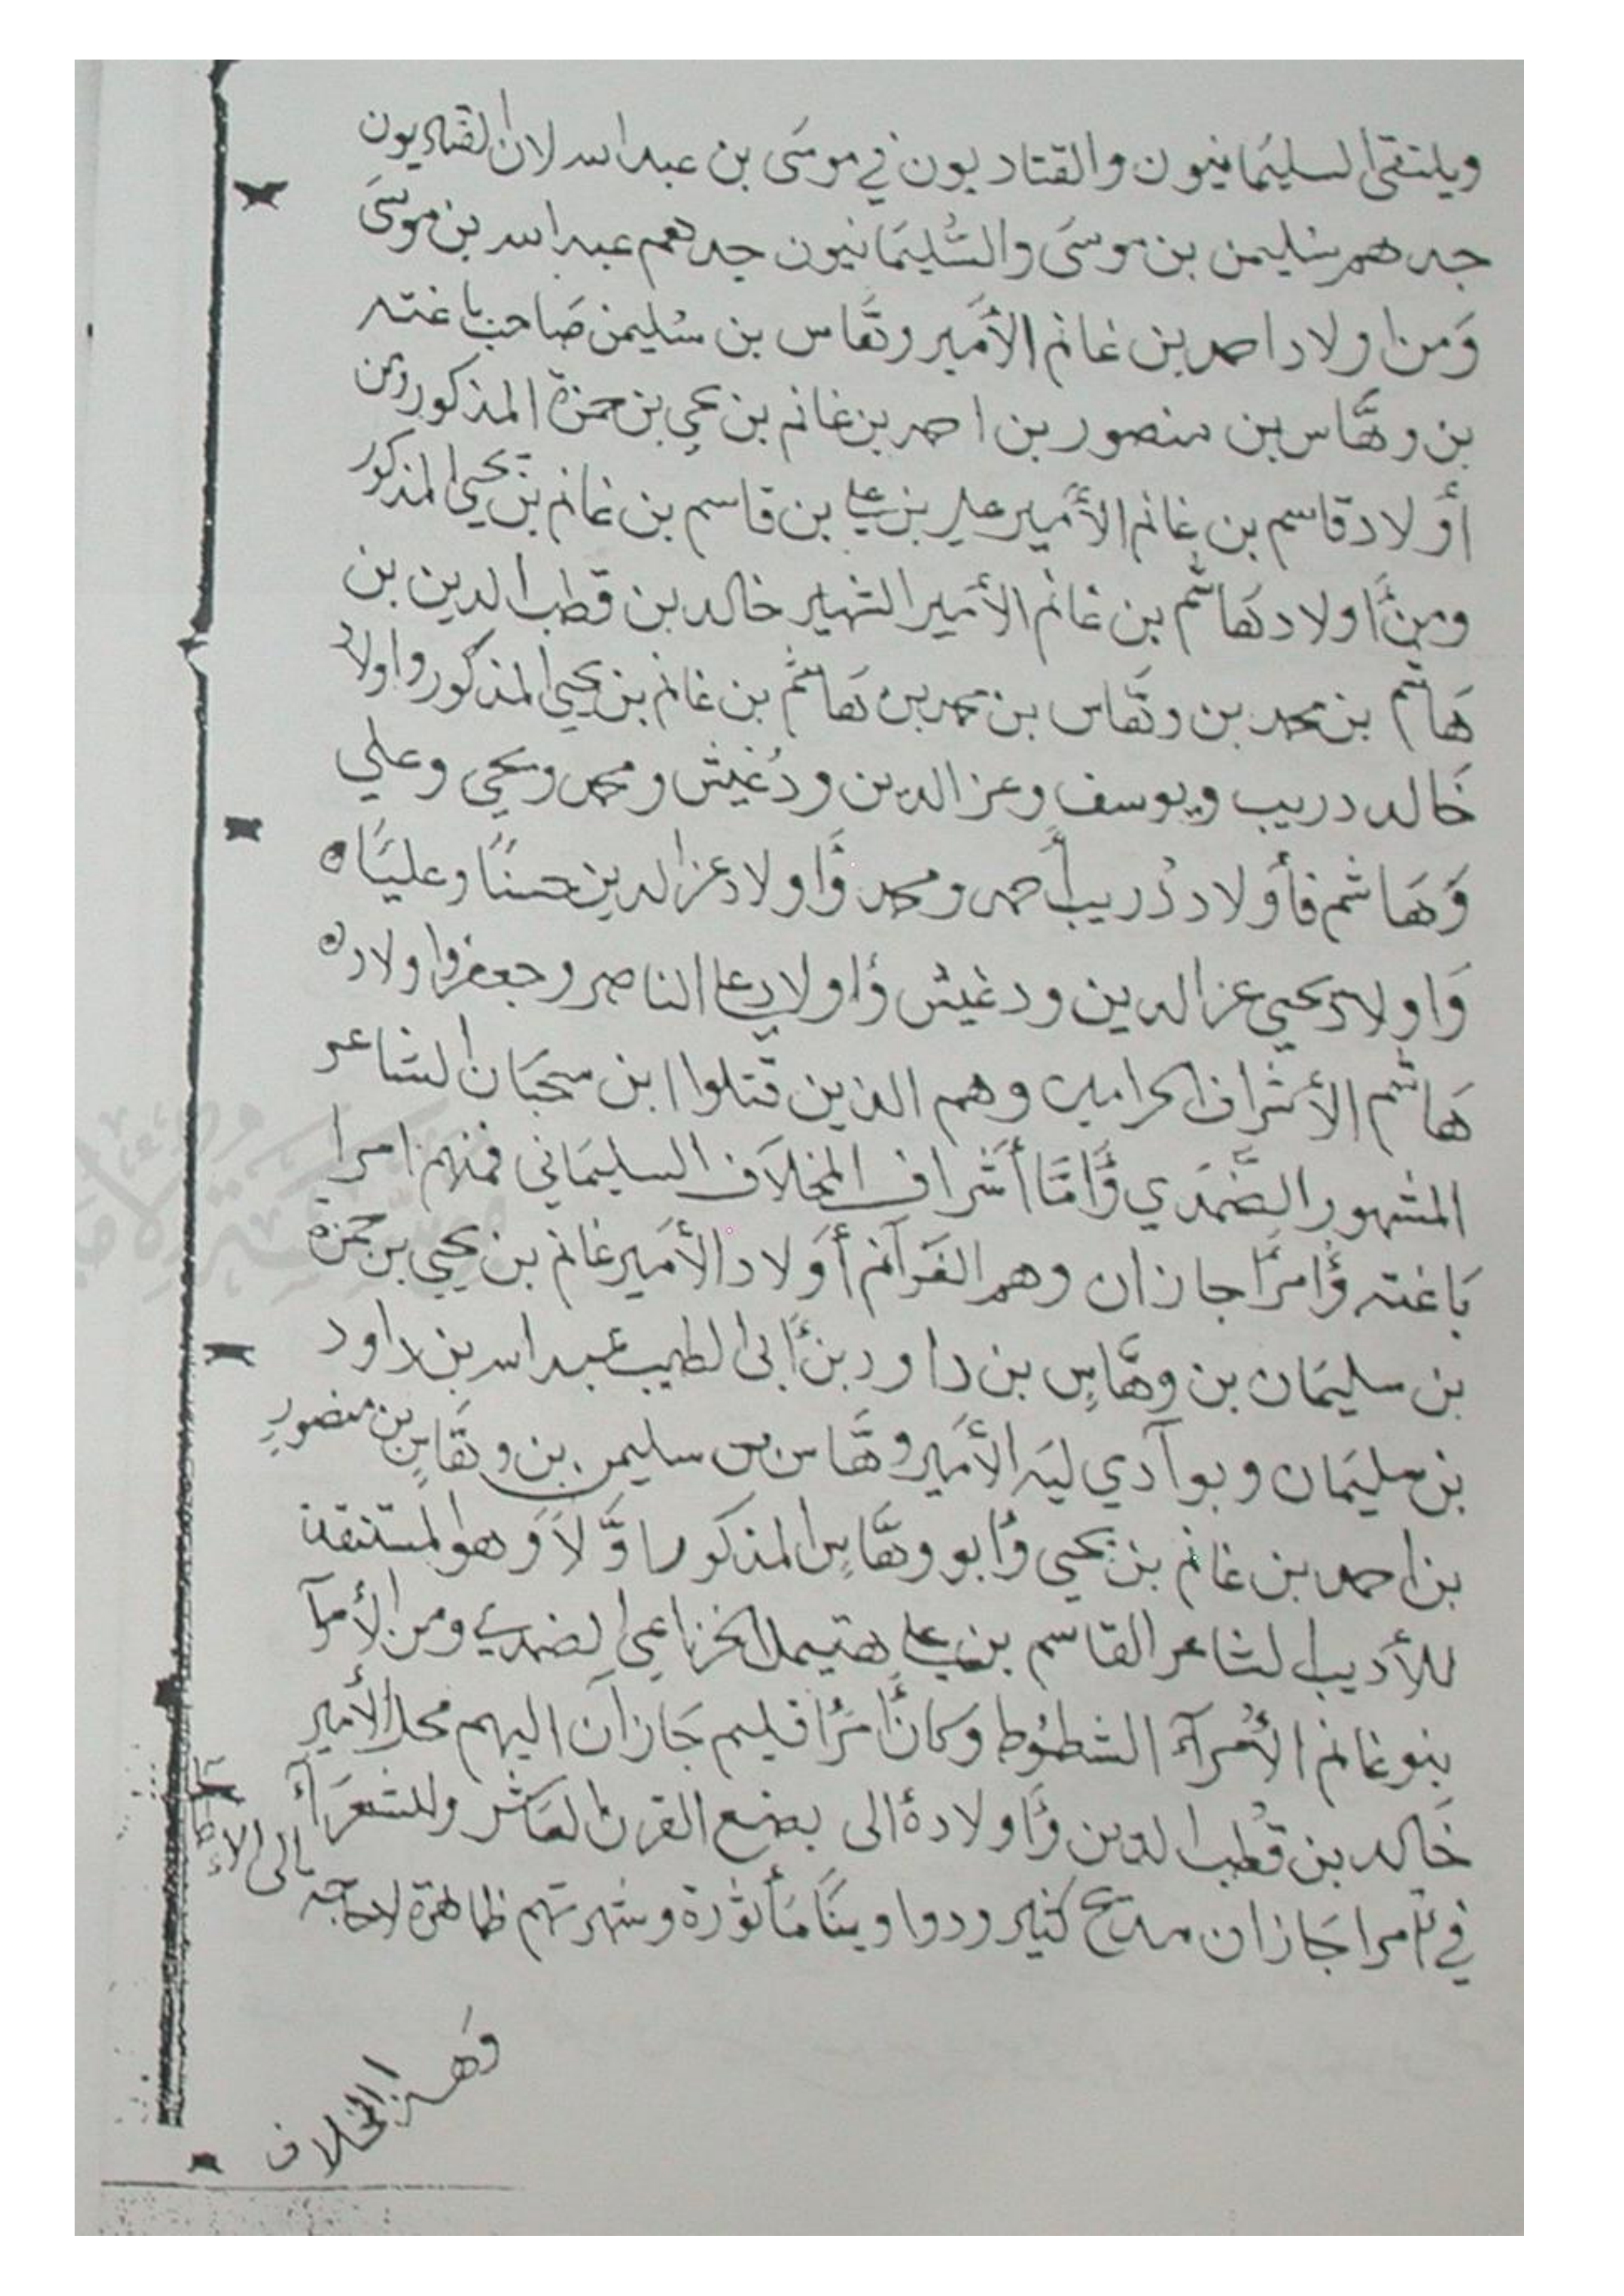 ويلتقى السليمانيون والقتاديون في موسى بن عبد الله لان القتاديون
جدهم سليمن بن موسى والسليمانيون جدهم عبد الله بن موسى
ومن اولاد احمد بن غانم الأمير وهاس بن سليمن صاحب باغته
بن وهاس بن منصور بن احمد بن غانم بن يحيى بن حمزة المذكور ومن
أولاد قاسم بن غانم الأمير علي بن علي بن قاسم بن غانم بن يحيى المذكور
ومن اولاد هاشم بن غانم الأمير الشهير خالد بن قطب الدين بن
هاشم بن محمد بن وهاس بن محمد بن هاشم بن غانم بن يحيى المذكور واولاد
خالد دريب ويوسف وعز الدين ودغيش ومحمد ويحيى وعلي
وهاشم فأولاد دريب أحمد ومحمد واولاد عز الدين حسنا وعليا ه
واولاد يحيى عز الدين ودغيش واولاد علي الناصر وجعفر واولاده
هاشم الأشراف الحراميه وهم الذين قتلوا ابن سحبان الشاعر
المشهور الضمدي وأما أشراف المخلاف السليماني فمنهم امرا
باغته وامرا جازان وهم الغوانم أولاد الأمير غانم بن يحيى بن حمزة
بن سليمان بن وهاس بن داود بن أبى الطيب عبد الله بن داود
بن سليمان وبوآدي ليه الأمير وهاس بن سليمن بن وهاس بن منصور
بن احمد بن غانم بن يحيى وابو وهاس المذكور اولا وهو المستنقذ
للأديب الشاعر القاسم بن علي هتيمل الخزاعي الضمدي ومن الأمرآ
بنو غانم الأمرآء الشطوط وكان امرا قليم جازان اليهم محلا الأمير
خالد بن قطب الدين واولاده الى بضع القرن العاشر وللشعرآء
في امرا جازان مديح كثير ودواوينا مأثورة وشهرتهم ظاهرة لا حاجة
الى الإطا
وهذا المخلاف